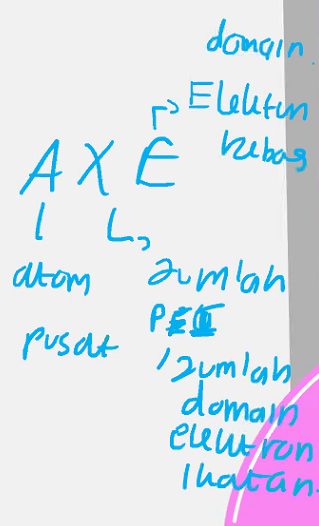 domain
Elektron
bebas
A X E
atom
pusat
Jumlah
PEI
/Jumlah
domain
elektron
Ikatan